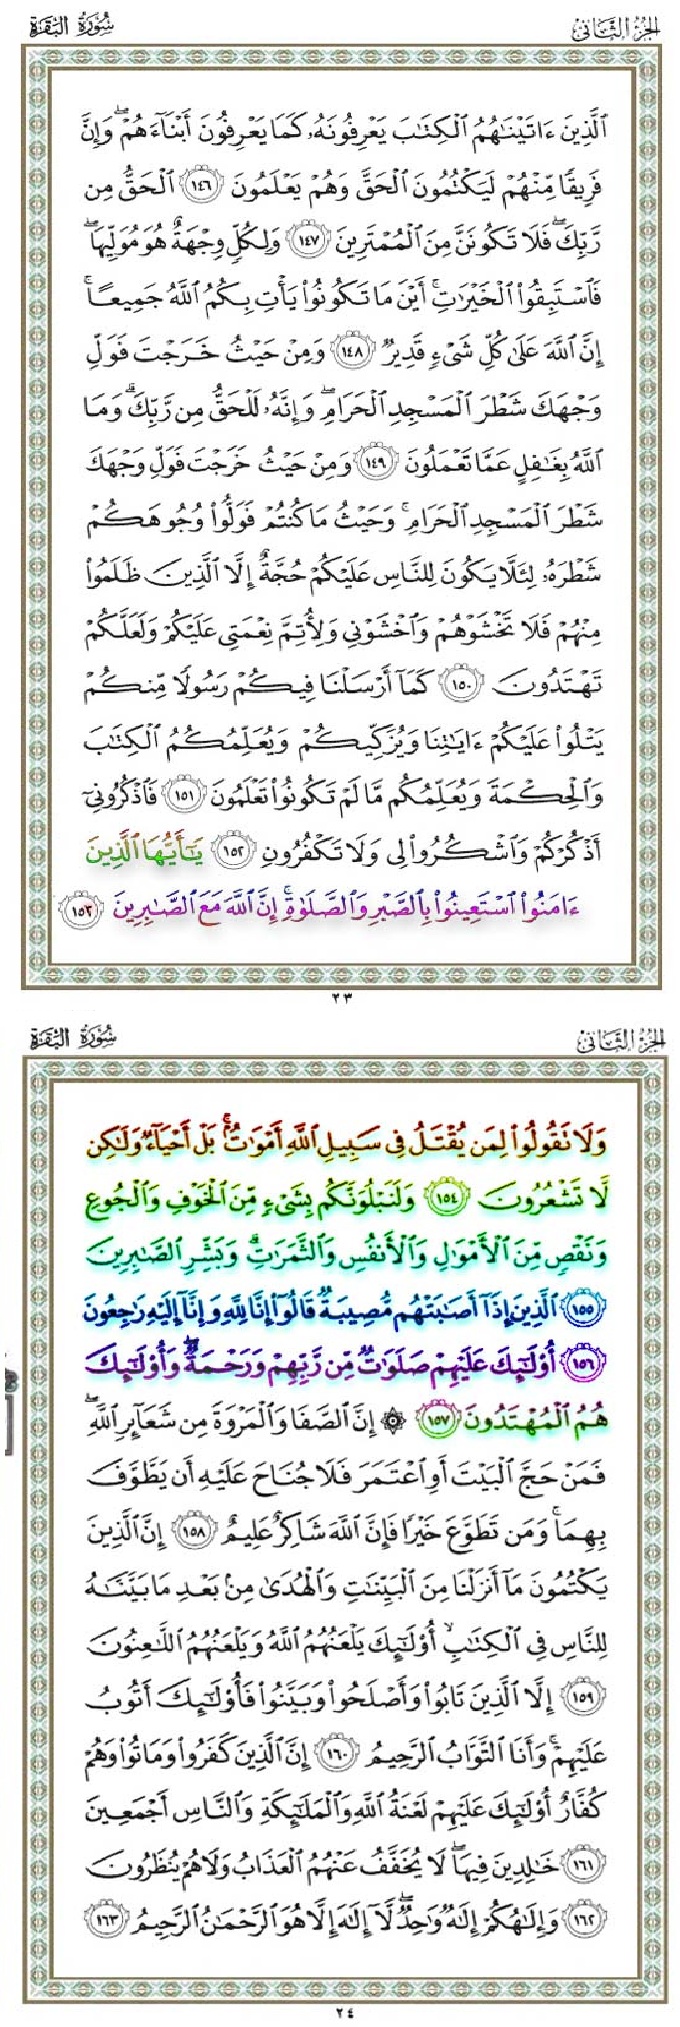 الجزء الثاني
سورة البقرة
الَّذِينَ ءَاتَيْنَٰهُمُ الْكِتَٰبَ يَعْرِفُونَهُۥ كَمَا يَعْرِفُونَ أَبْنَآءَهُمْ ۖ وَإِنَّ
فَرِيقًا مِّنْهُمْ لَيَكْتُمُونَ الْحَقَّ وَهُمْ يَعْلَمُونَ ١٤٦ الْحَقُّ مِن
رَّبِّكَ ۖ فَلَا تَكُونَنَّ مِنَ الْمُمْتَرِينَ ١٤٧ وَلِكُلٍّ وِجْهَةٌ هُوَ مُوَلِّيهَا ۖ
فَاسْتَبِقُوا الْخَيْرَٰتِ ۚ أَيْنَ مَا تَكُونُوا يَأْتِ بِكُمُ اللَّهُ جَمِيعًا ۚ
إِنَّ اللَّهَ عَلَىٰ كُلِّ شَىْءٍ قَدِيرٌ ١٤٨ وَمِنْ حَيْثُ خَرَجْتَ فَوَلِّ
وَجْهَكَ شَطْرَ الْمَسْجِدِ الْحَرَامِ ۖ وَإِنَّهُۥ لَلْحَقُّ مِن رَّبِّكَ ۗ وَمَا
اللَّهُ بِغَٰفِلٍ عَمَّا تَعْمَلُونَ ١٤٩ وَمِنْ حَيْثُ خَرَجْتَ فَوَلِّ وَجْهَكَ
شَطْرَ الْمَسْجِدِ الْحَرَامِ ۚ وَحَيْثُ مَا كُنتُمْ فَوَلُّوا وُجُوهَكُمْ
شَطْرَهُۥ لِئَلَّا يَكُونَ لِلنَّاسِ عَلَيْكُمْ حُجَّةٌ إِلَّا الَّذِينَ ظَلَمُوا
مِنْهُمْ فَلَا تَخْشَوْهُمْ وَاخْشَوْنِى وَلِأُتِمَّ نِعْمَتِى عَلَيْكُمْ وَلَعَلَّكُمْ
تَهْتَدُونَ ١٥٠ كَمَآ أَرْسَلْنَا فِيكُمْ رَسُولًا مِّنكُمْ
يَتْلُوا عَلَيْكُمْ ءَايَٰتِنَا وَيُزَكِّيكُمْ وَيُعَلِّمُكُمُ الْكِتَٰبَ
وَالْحِكْمَةَ وَيُعَلِّمُكُم مَّا لَمْ تَكُونُوا تَعْلَمُونَ ١٥١ فَاذْكُرُونِىٓ
أَذْكُرْكُمْ وَاشْكُرُوا لِى وَلَا تَكْفُرُونِ ١٥٢ يَٰٓأَيُّهَا الَّذِينَ
ءَامَنُوا اسْتَعِينُوا بِالصَّبْرِ وَالصَّلَوٰةِ ۚ إِنَّ اللَّهَ مَعَ الصَّٰبِرِينَ ١٥٣
٢٣
الجزء الثاني
سورة البقرة
وَلَا تَقُولُوا لِمَن يُقْتَلُ فِى سَبِيلِ اللَّهِ أَمْوَٰتٌۢ ۚ بَلْ أَحْيَآءٌ وَلَٰكِن
لَّا تَشْعُرُونَ ١٥٤ وَلَنَبْلُوَنَّكُم بِشَىْءٍ مِّنَ الْخَوْفِ وَالْجُوعِ
وَنَقْصٍ مِّنَ الْأَمْوَٰلِ وَالْأَنفُسِ وَالثَّمَرَٰتِ ۗ وَبَشِّرِ الصَّٰبِرِينَ
١٥٥ الَّذِينَ إِذَآ أَصَٰبَتْهُم مُّصِيبَةٌ قَالُوٓا إِنَّا لِلَّهِ وَإِنَّآ إِلَيْهِ رَٰجِعُونَ
١٥٦ أُولَٰٓئِكَ عَلَيْهِمْ صَلَوَٰتٌ مِّن رَّبِّهِمْ وَرَحْمَةٌ ۖ وَأُولَٰٓئِكَ
هُمُ الْمُهْتَدُونَ ١٥٧ ۞ إِنَّ الصَّفَا وَالْمَرْوَةَ مِن شَعَآئِرِ اللَّهِ ۖ
فَمَنْ حَجَّ الْبَيْتَ أَوِ اعْتَمَرَ فَلَا جُنَاحَ عَلَيْهِ أَن يَطَّوَّفَ
بِهِمَا ۚ وَمَن تَطَوَّعَ خَيْرًا فَإِنَّ اللَّهَ شَاكِرٌ عَلِيمٌ ١٥٨ إِنَّ الَّذِينَ
يَكْتُمُونَ مَآ أَنزَلْنَا مِنَ الْبَيِّنَٰتِ وَالْهُدَىٰ مِنۢ بَعْدِ مَا بَيَّنَّٰهُ
لِلنَّاسِ فِى الْكِتَٰبِ ۙ أُولَٰٓئِكَ يَلْعَنُهُمُ اللَّهُ وَيَلْعَنُهُمُ اللَّٰعِنُونَ
١٥٩ إِلَّا الَّذِينَ تَابُوا وَأَصْلَحُوا وَبَيَّنُوا فَأُولَٰٓئِكَ أَتُوبُ
عَلَيْهِمْ ۚ وَأَنَا التَّوَّابُ الرَّحِيمُ ١٦٠ إِنَّ الَّذِينَ كَفَرُوا وَمَاتُوا وَهُمْ
كُفَّارٌ أُولَٰٓئِكَ عَلَيْهِمْ لَعْنَةُ اللَّهِ وَالْمَلَٰٓئِكَةِ وَالنَّاسِ أَجْمَعِينَ
١٦١ خَٰلِدِينَ فِيهَا ۖ لَا يُخَفَّفُ عَنْهُمُ الْعَذَابُ وَلَا هُمْ يُنظَرُونَ
١٦٢ وَإِلَٰهُكُمْ إِلَٰهٌ وَٰحِدٌ ۖ لَّآ إِلَٰهَ إِلَّا هُوَ الرَّحْمَٰنُ الرَّحِيمُ ١٦٣
٢٤